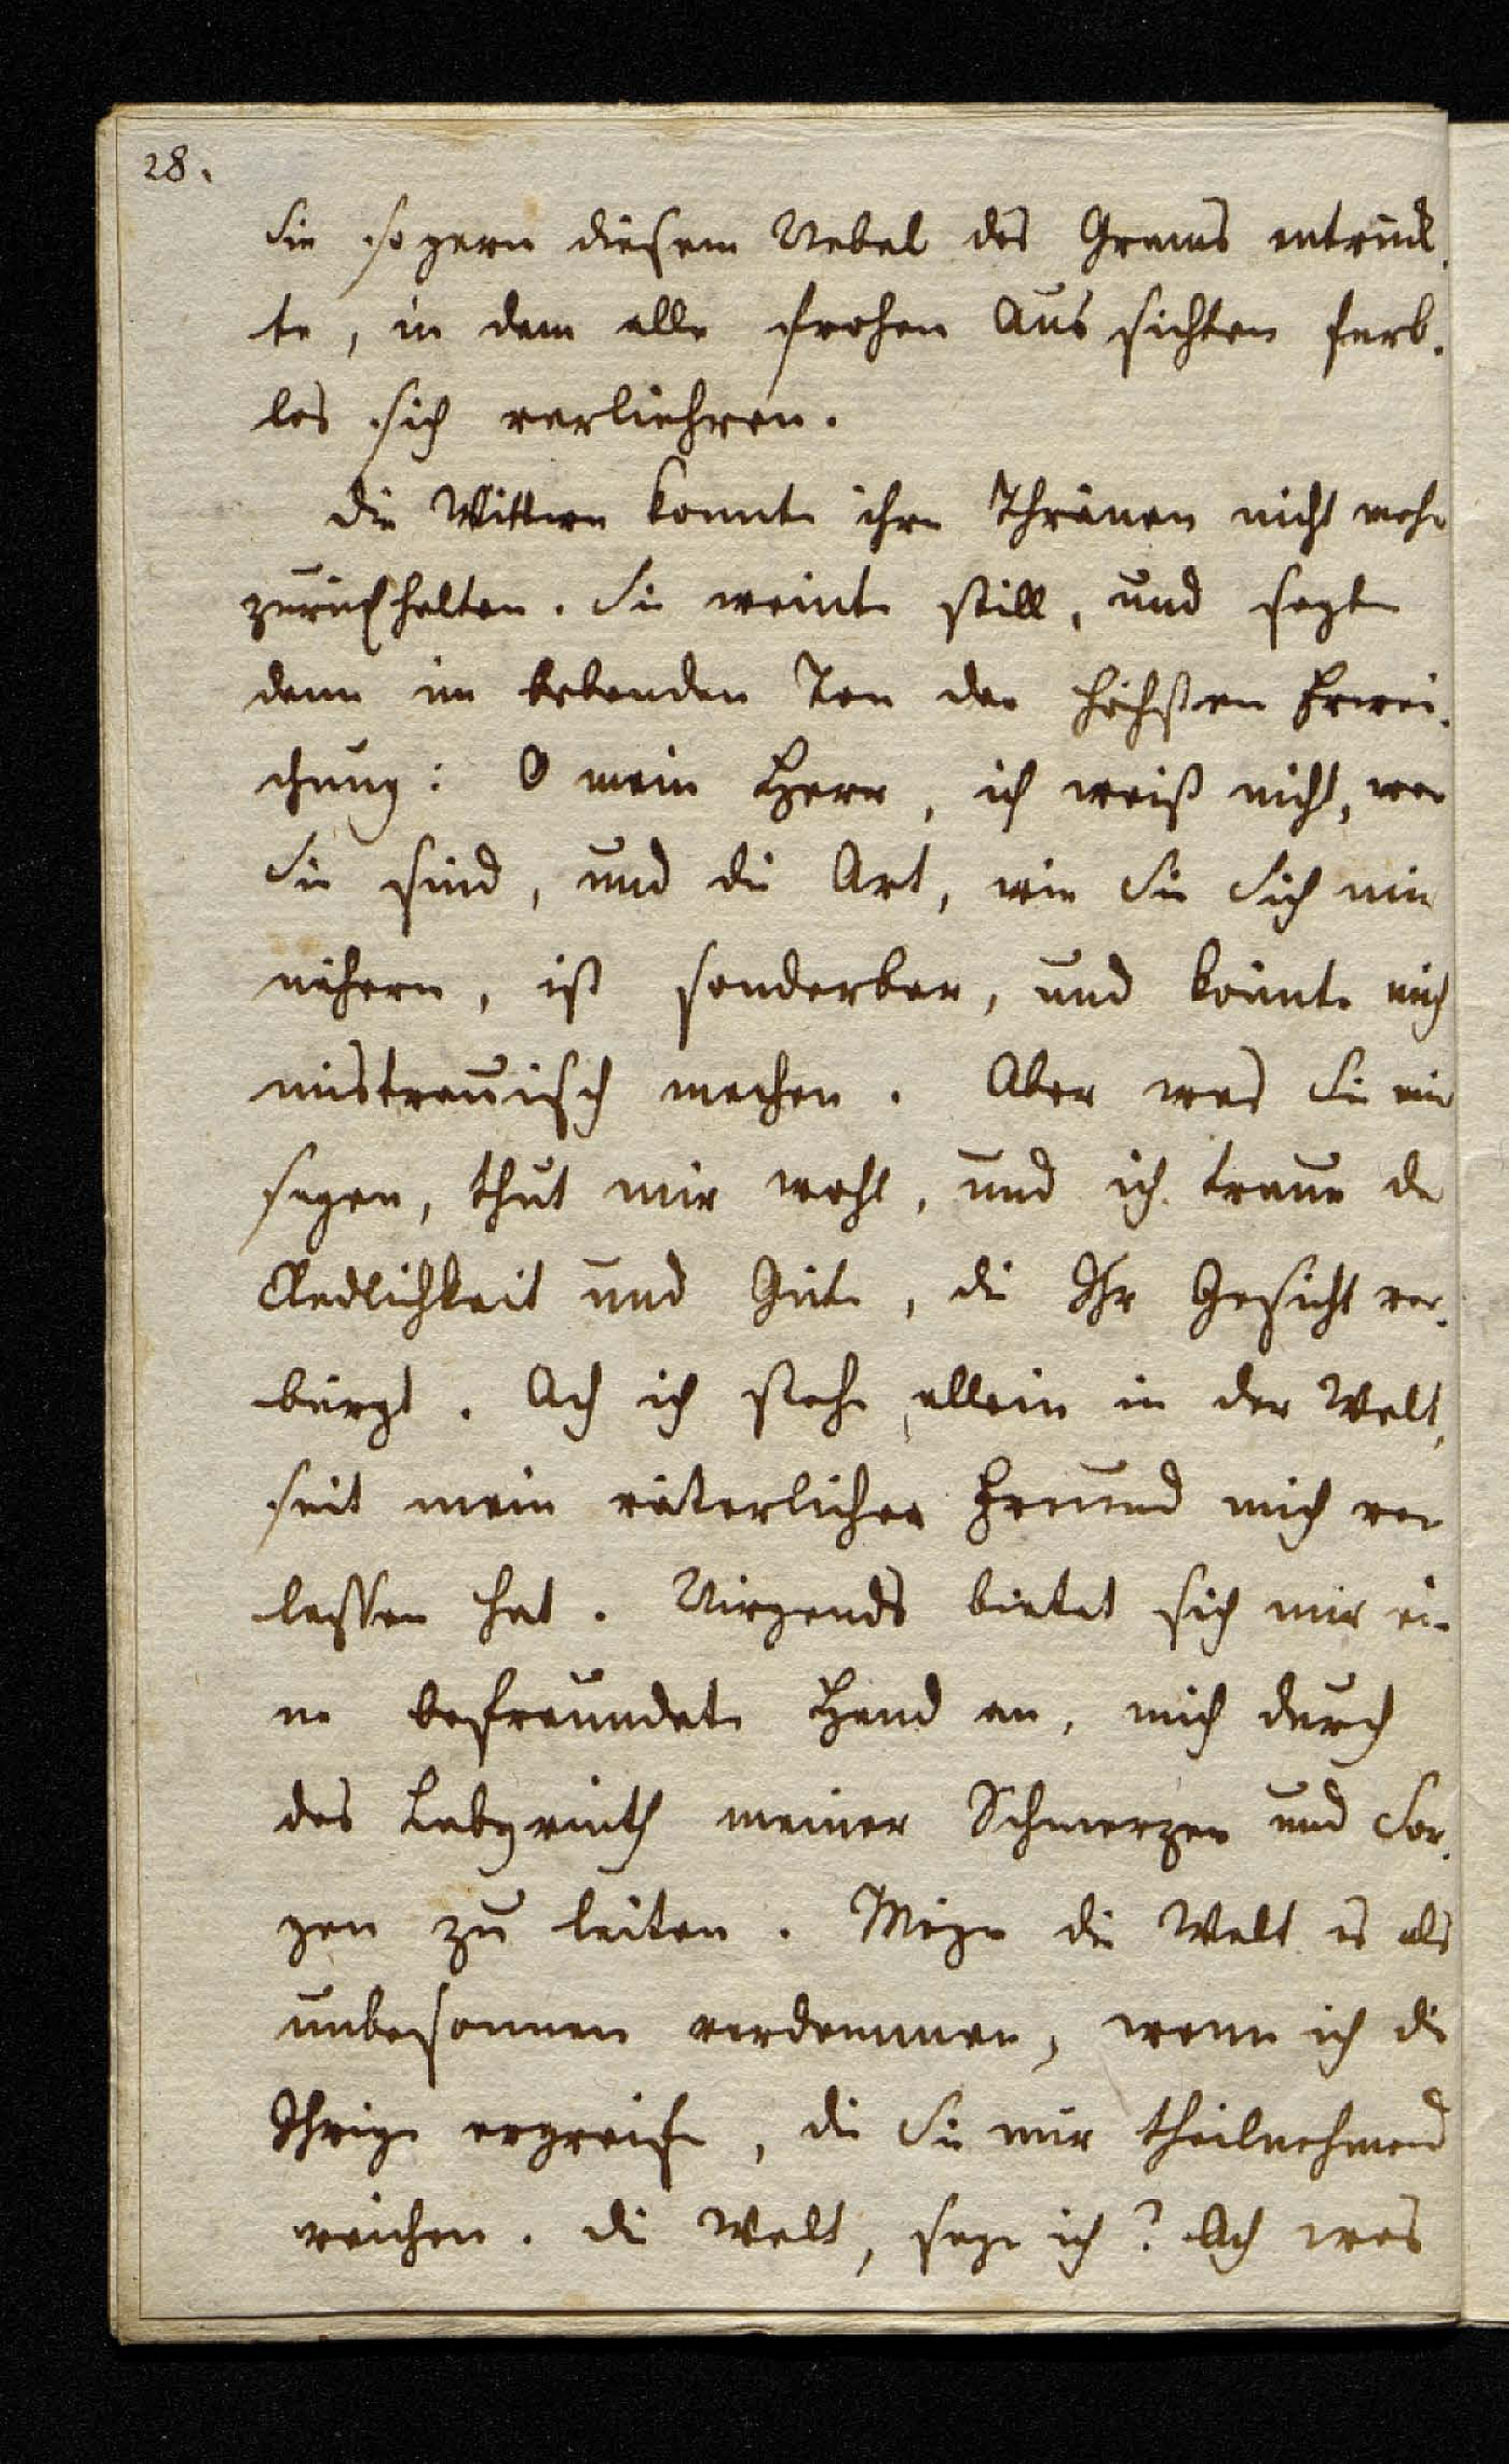 28.
Sie so gern diesem Nebel des Grams entrück-
te, in dem alle frohen Aussichten farb-
los sich verliehren.
Die Wittwe konnte ihre Thränen nicht mehr
zurückhalten. Sie weinte still, und sagte
dann im bebenden Ton der höchsten Erwei-
chung: O mein Herr, ich weiß nicht, wer
Sie sind, und die Art, wie Sie Sich mir
nähern, ist sonderbar, und könnte mich
mistrauisch machen. Aber was Sie mir
sagen, thut mir wohl, und ich traue der
Redlichkeit und Güte, die Ihr Gesicht ver-
bürgt. Ach ich stehe allein in der Welt,
seit mein väterlicher Freund mich ver
lassen hat. Nirgends bietet sich mir ei-
ne befreundete Hand an, mich durch
das Labyrinth meiner Schmerzen und Sor-
gen zu leiten. Möge die Welt es als
unbesonnen verdammen, wenn ich die
Ihrige ergreife, die Sie mir theilnehmend
reichen. Die Welt, sage ich? Ach was